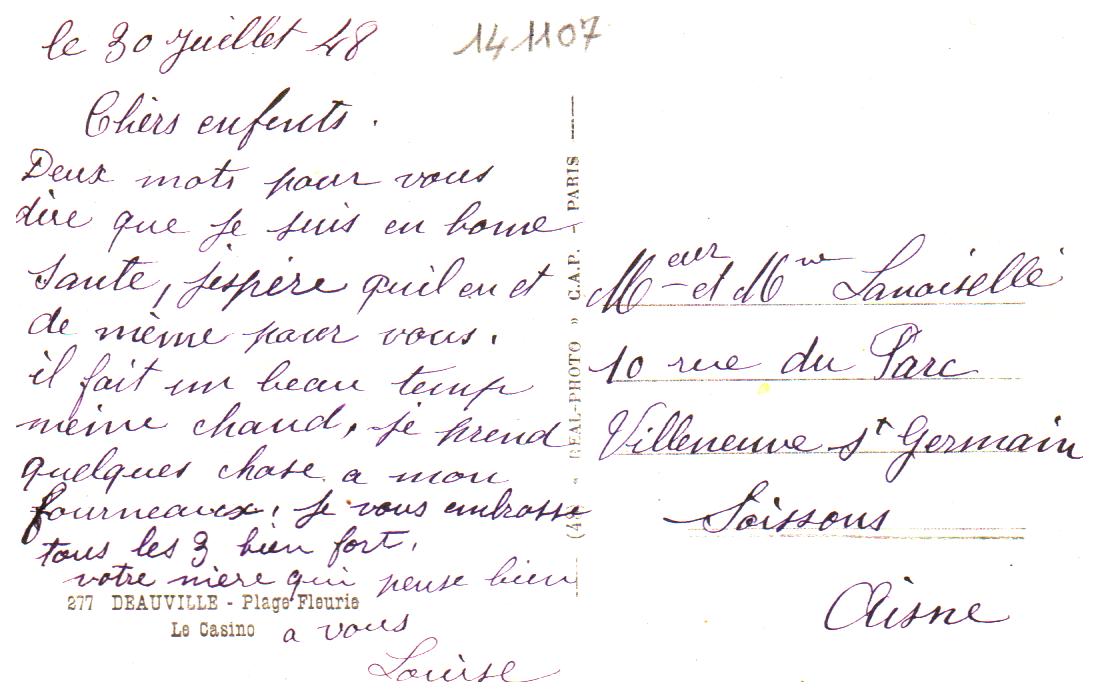 le 30 Juillet 48
141107
Chers enfents.
Deux mots pour vous
dire que je suis en bonne
santé, j'espère qu'il en et
de même pour vous.
il fait un beau temp
meine chaud, je prend
quelques chose a mon
fourneaux, je vous embrasse
tous les 3 bien fort.
votre mère qui pense bien
a vous
Louise
277 DEAUVILLE - Plage Fleurie
Le Casino
REAL-PHOTO » C.A.P. - PARIS
Meur et Mme Lanoisellé
10 rue du Parc
Villeneuve St Germain
Soissons
Aisne